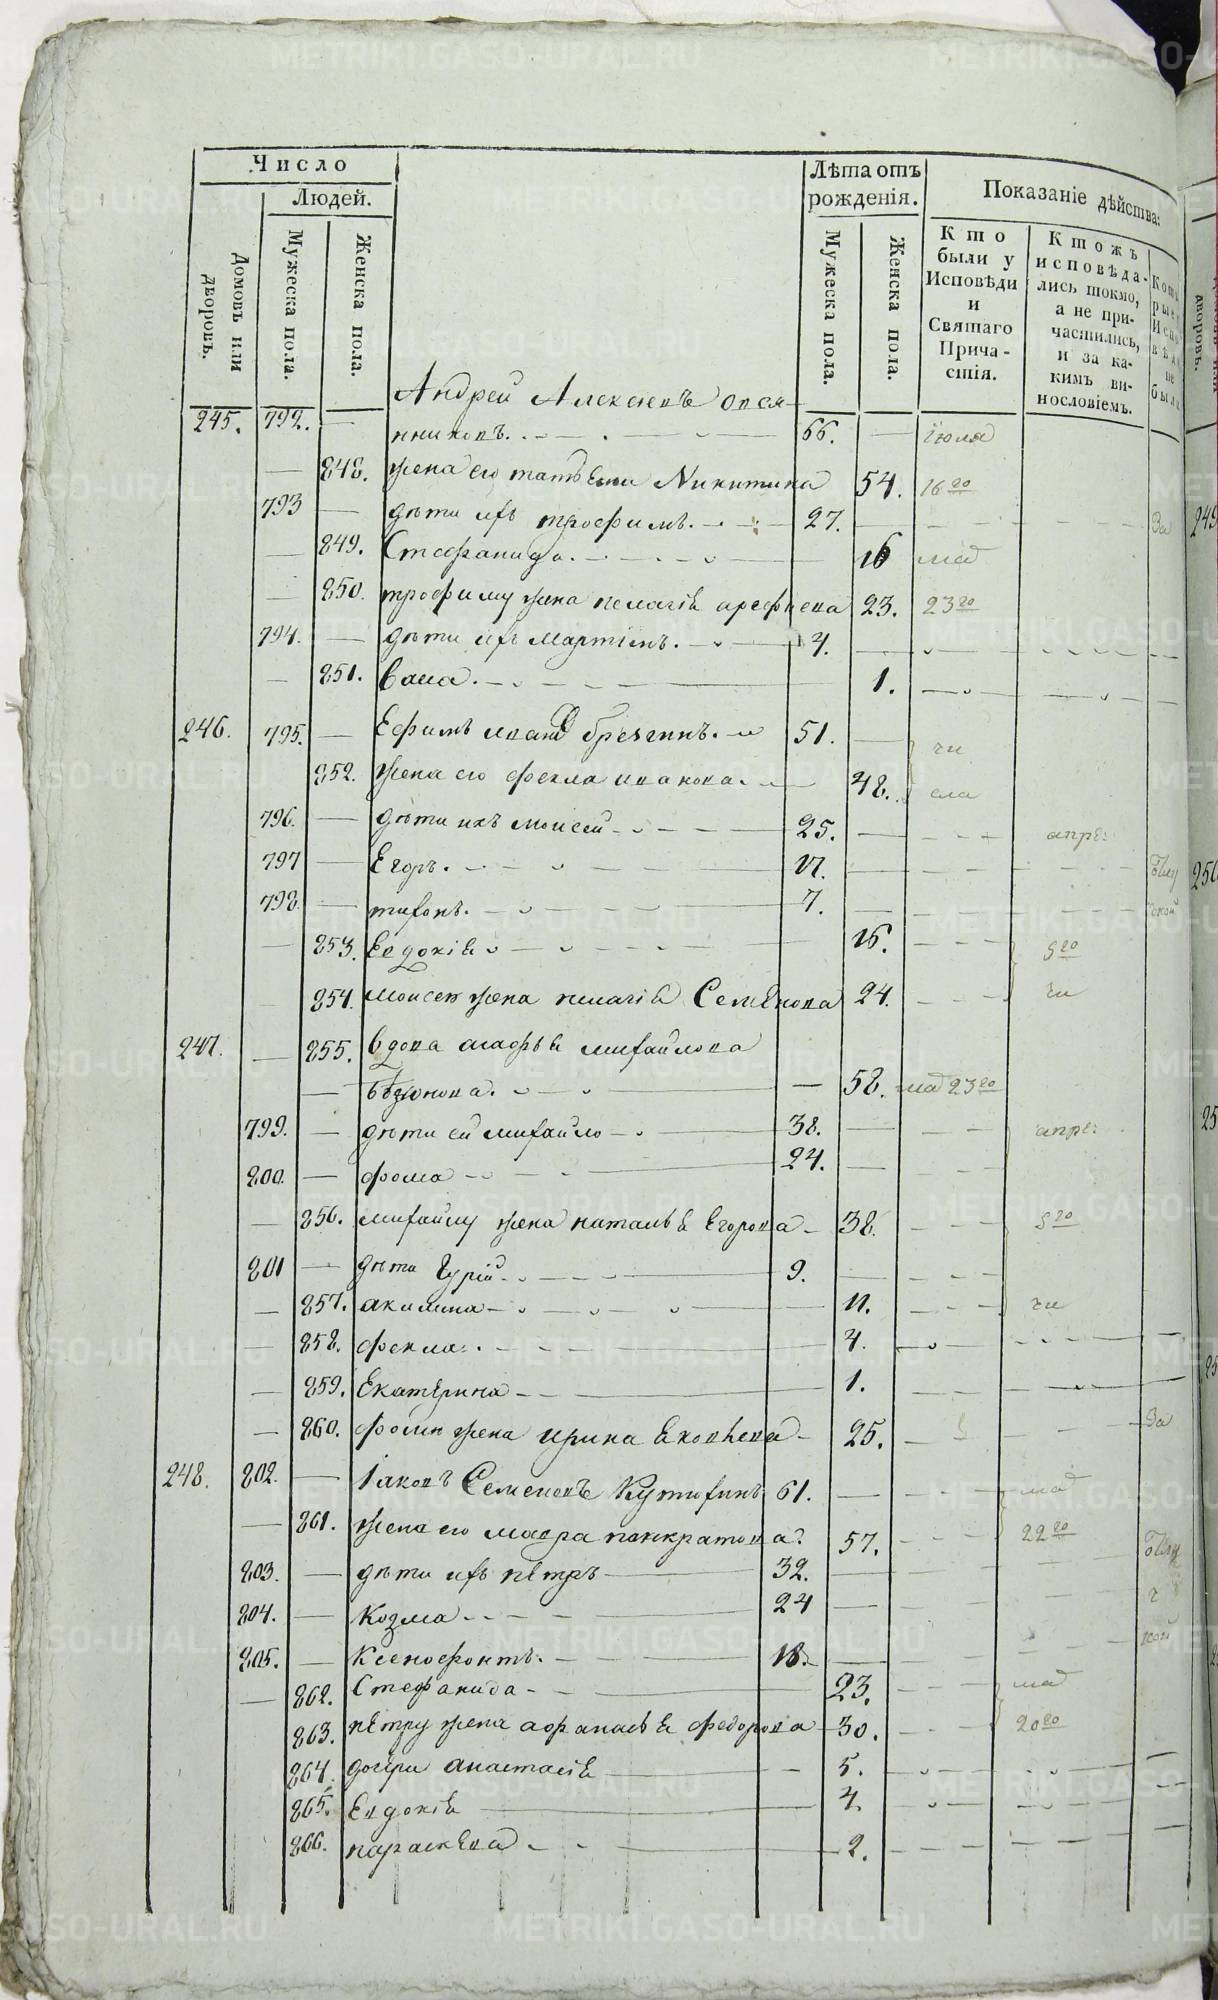 Число
Людей.
Домовъ или дворовъ.
Мужеска пола.
Женска пола.
Лѣта отъ рожденія.
Мужеска пола.
Женска пола.
Показаніе дѣйства:
Кто были у Исповѣди и Святаго Причастія.
Ктожъ исповѣдались токмо, а не причастились, и за какимъ винословіемъ.
245. 792. Андрей Алексѣевъ
нниковъ. 66. іюля
848. жена его татьѧна Никитина 54. 16 го
793 дѣти ихъ трофимъ. 27. За
849. Стефанида. 16 маѧ
850. трофиму жена пелагіѧ арефиева 23. 23 го
794. дѣти ихъ мартінъ. 4.
851. васса. 1.
246. 795. Ефимъ ивановъ брезгинъ. 51. чи
852. жена его фекла иванова. 48. сла
796. дѣти ихъ моисей 25. апре:
797 Егоръ. 17.
798 тихонъ. 7.
853. Евдокіѧ 16. 5 го
854. моисею жена пелагіѧ Семѣнова 24. чи
247. 855. вдова агафьѧ михайлова
58. маѧ 23 го
799. дѣти ей михайло 38. апре:
800. фома 24.
856. михайлу жена натальѧ Егорова 38. 5 го
801 дѣти Гурій 9.
857. акилина 11. чи
858. фекла. 4.
859. Екатерина 1.
860. фомы жена ирина ѧковлева 25. За
248. 802. Іаковъ Семеновъ Кутихинъ 61. маѧ
861. жена его мавра панкратова. 57. 22 го
803. дѣти ихъ пѣтръ 32.
804. козма 24
805. Ксенофонтъ. 18.
862. Стефанида 23. маѧ
863. пѣтру жена афанасьѧ федорова 30. 20 го
864. дочери анастасіѧ 5.
865. Евдокіѧ 4.
866. параскева 2.
METRIKI.GASO-URAL.RU